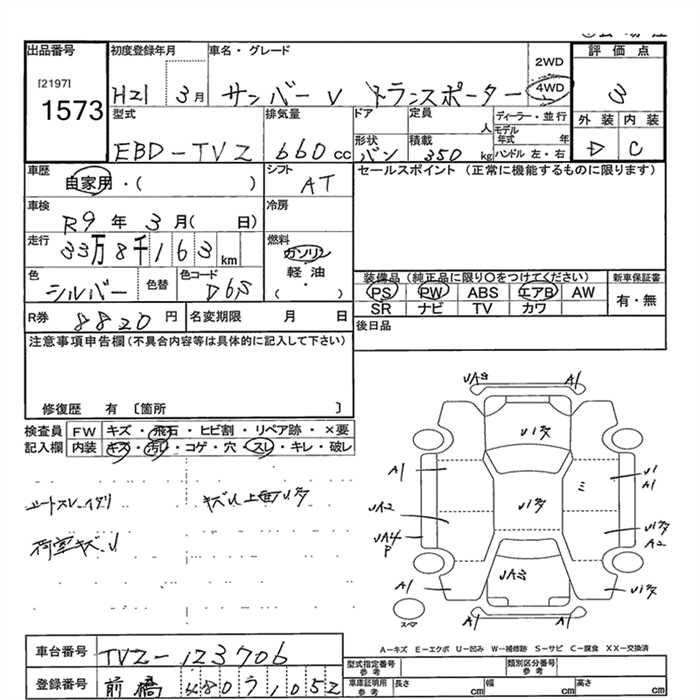 出品番号
[2197]
1573
初度登録年月
H21 3月
車名・グレード
サンバーV トランスポーター
2WD
4WD
評価点
3
外装 内装
D C
型式
EBD-TV2
排気量
660cc
ドア
形状
バン
定員
人
積載
350kg
ディーラー・並行
モデル年式 年
ハンドル 左・右
車歴
自家用・( )
シフト
AT
セールスポイント (正常に機能するものに限ります)
車検
R9年 3月( 日)
冷房
走行
33万8千163km
燃料
ガソリン
軽油
( )
色
シルバー
色替
色コード
D6S
装備品 (純正品に限り○をつけてください)
新車保証書
PS PW ABS エアB AW
有・無
SR ナビ TV カワ
R券 8820円
名変期限 月 日
後日品
注意事項申告欄(不具合内容等は具体的に記入して下さい)
修復歴 有 〔箇所 〕
検査員記入欄
FW キズ・飛石・ヒビ割・リペア跡・×要
内装 キズ・汚れ・コゲ・穴・スレ・キレ・破レ
荷室キズ・U
UA3 A1
A1
UA2
UA4
P
A1
U1
A1
A2
UA3
スペア
A-キズ E-エクボ U-凹み W-補修跡 S-サビ C-腐食 XX-交換済
車台番号
TV2-123706
登録番号
前橋 480 ら 1052
型式指定番号
参考
類別区分番号
参考
車庫証明用
参考
長さ cm
幅 cm
高さ cm